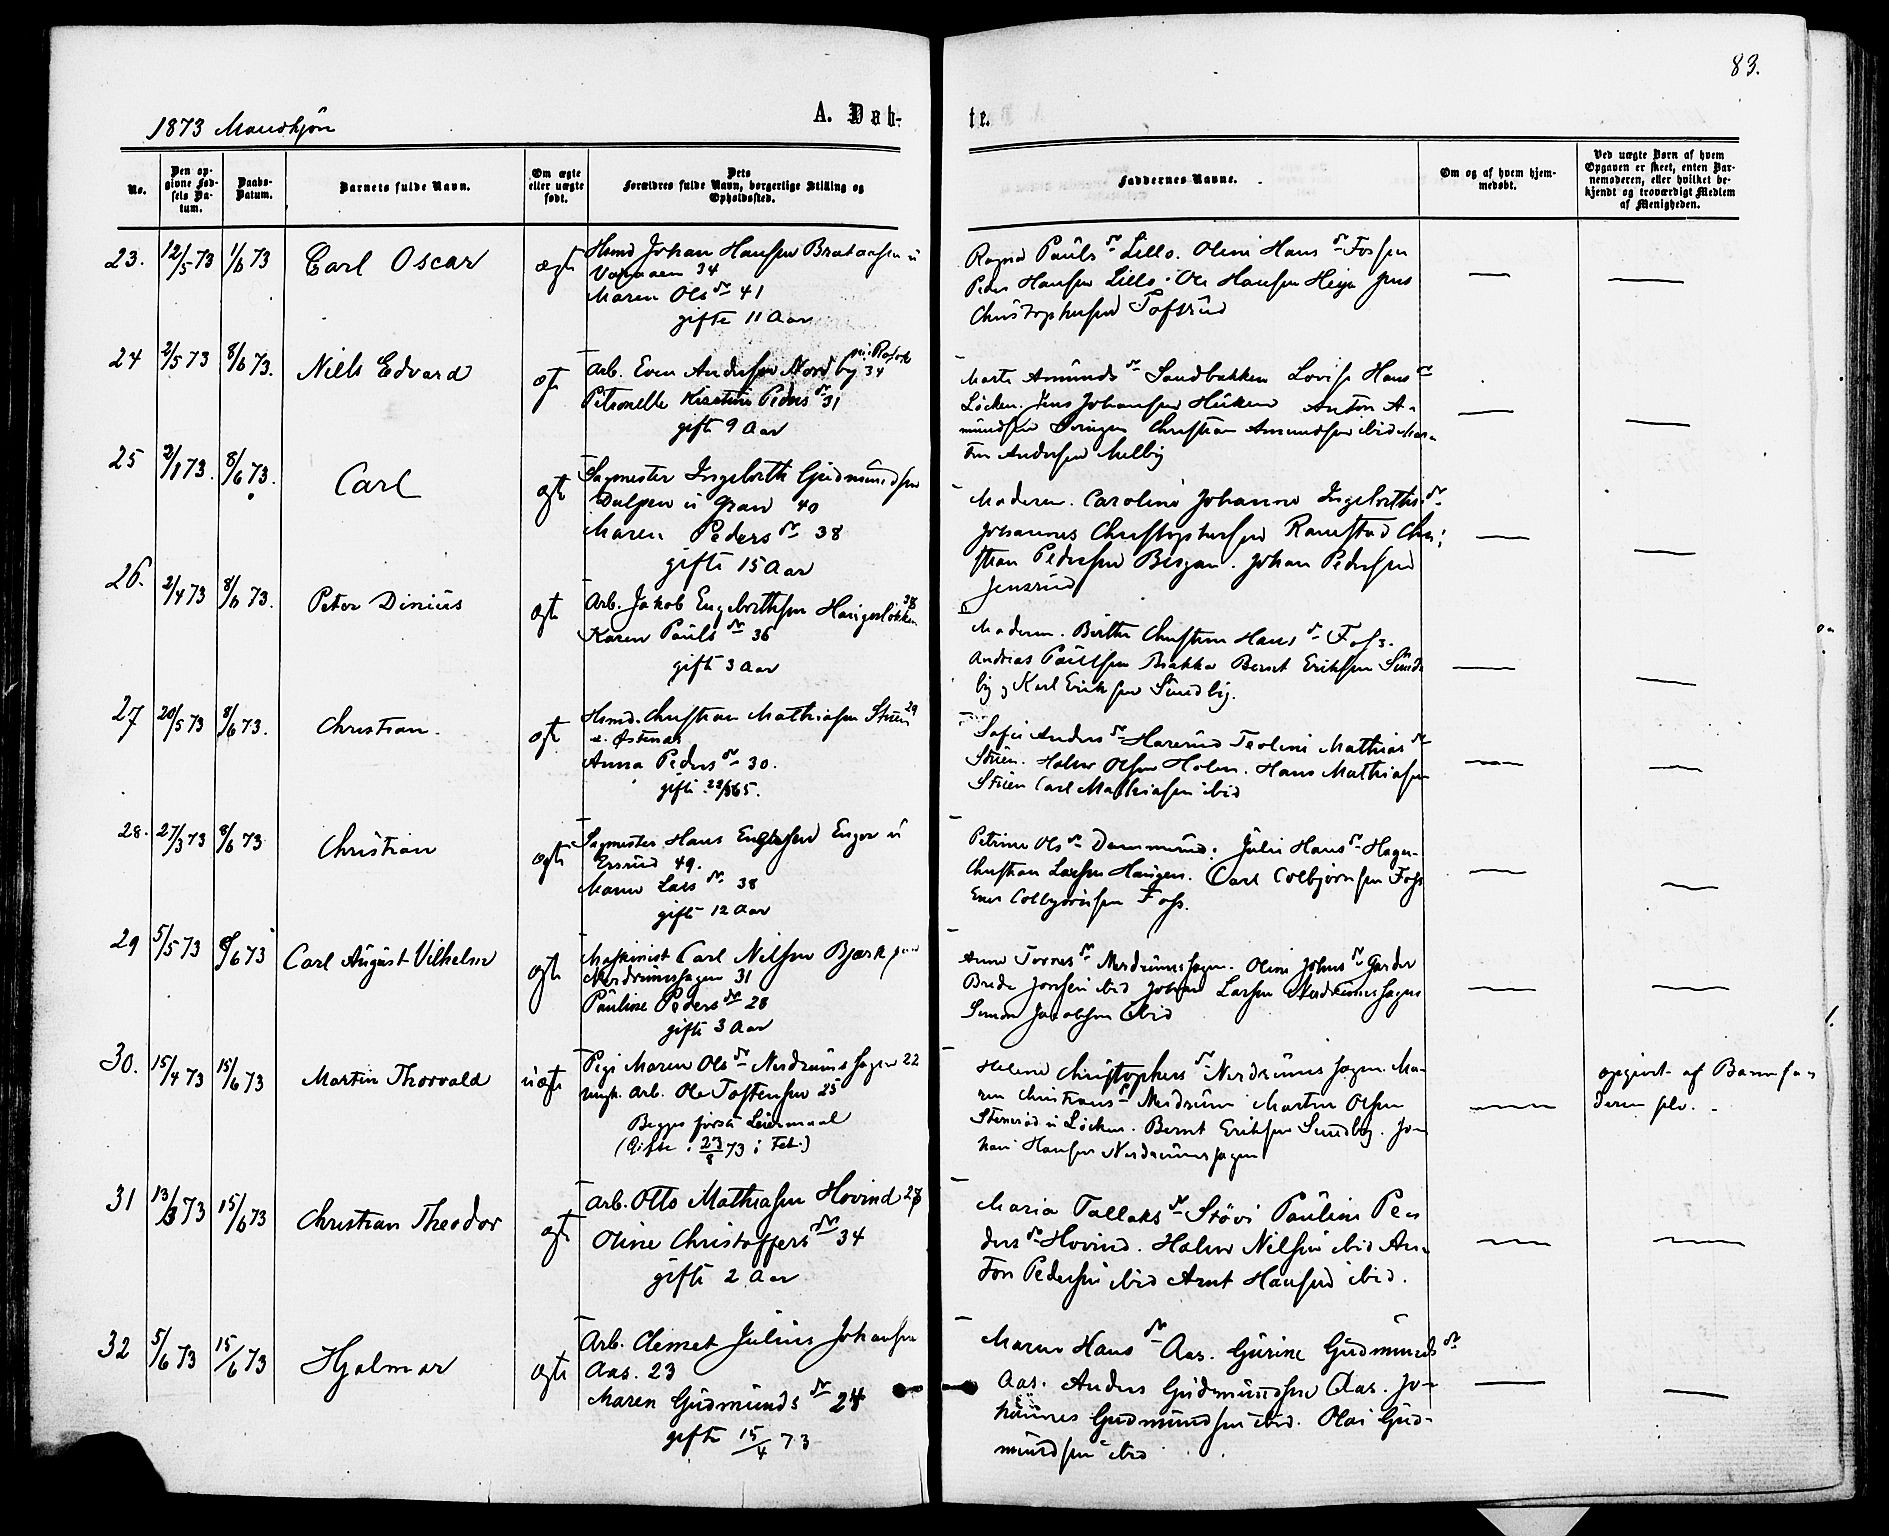 83.
1873 Mandkjön
A. Døb-
te.
No.
Den op-
givne Fød-
sels Da-
tum.
Daabs-
Datum.
Barnets fulde Navn.
Om ægte
eller uægte
født.
Dets
Forældres fulde Navn, borgerlige Stilling og
Opholdssted.
Faddernes Navne.
Om og af hvem hjem-
medøbt.
Ved uægte Børn af hvem
Opgaven er skeet, enten Bar-
nemoderen, eller hvilket be-
kjendt og troværdigt Medlem
af Menigheden.
23. 12/5 73 1/6 73 Carl Oscar ægte
Husmd Johan Hansen Brataasen u
34
Maren Olsdr 41
gifte 11 Aar
Ragna Paulsdr Lillo. Oline Hansdr Fossen
Peder Hansen Lillo. Ole Hansen Jens
Christophersen Tofsrud
24 2/5 73 8/6 73. Niels Edvard ægte
Arb. Even Andersen Nordby 34
Petronelle Kirstine Pedersdr 31
gifte 9 Aar
Marte Amundsdr Sandbakken Lovise Hansdr
Löcken. Jens Johansen Anton A-
mundsen Christian Amundsen ibid Mar-
tin Andersen Melby
25 3/1 73. 8/6 73. Carl ægte
Sagmester Ingebreth Gudmundsen
Dalpen u Gran 40
Maren Pedersdr 38
gifte 15 Aar
Moderen. Caroline Johanne Ingebrethsdr
Johannes Christophersen Ramstad Chri-
stian Pedersen Johan Pedersen
Jensrud
26. 2/4 73 8/6 73. Peter Dinius ægte
Arb. Jakob Engebrethsen Haugerløkken 38
Karen Paulsdr 36
gifte 3 Aar
Moderen. Berthe Christine Hansdr Foss.
Andreas Paulsen Brakka Bernt Eriksen Sund-
by, Karl Eriksen Sundby.
27 20/5 73 8/6 73. Christian. ægte
Husmd. Christian Mathiasen Stuen 29
Anna Pedersdr 30.
gifte 65.
Sofie Andersdr Harerud Teoline Mathiasdr
Stuen. Halvor Olsen Holen. Hans Mathiasen
Stuen Carl Mathiasen ibid
28. 27/3 73 8/6 73 Christian ægte
Sagmester Hans Engen u
Ersrud 49.
Maren Larsdr 38
gifte 12 Aar
Petrine Olsdr Dammerud. Julie Hansdr Hagen
Christian Larsen Haugen. Carl Colbjørnsen Foss
Enes Colbjørnsen Foss.
29 5/5 73 8/6 73 Carl August Vilhelm ægte
Maskinist Carl Nilsen Bjerk
Nerdrumssagen 31
Pauline Pedersdr 28
gifte 3 Aar
Anne Torersdr Nerdrumssagen. Oline Johnsdr Garder
Brede Jonsen ibid Johan Larsen Nerdrumssagen
Simon Jacobsen ibid
30. 15/4 73 15/6 73 Martin Thorvald uægte
Pige Maren Olsdr Nerdrumssagen 22
ungk. Arb. Ole Tostensen 25
Begges første Leiermaal
(Gifte 23/8 73 i Fet.)
Helene Christophersdr Nerdrumssagen. Ma-
ren Christiansdr Nerdrum Martin Olsen
Stenerød u Löcken. Bernt Eriksen Sundby. Jo-
han Hansen Nerdrumssagen
opgivet af Barnefa-
deren selv.
31 13/3 73 15/6 73 Christian Theodor ægte
Arb. Otto Mathiasen Hovind 28
Oline Christoffersdr 34
gifte 2 Aar
Maria Tallaksdr Støvi Pauline Pe-
dersdr Hovind. Halvor Nilsen ibid An-
ton Pedersen ibid Arnt Hansen ibid.
32 5/6 73 15/6 73 Hjalmar ægte
Arb. Clemet Julius Johansen
Aas. 23
Maren Gudmundsdr 24
gifte 15/4 73
Maren Hansdr Aas. Gurine Gudmundsdr
Aas. Anders Gudmundsen Aas. Jo-
hannes Gudmundsen ibid. Olai Gud-
mundsen ibid